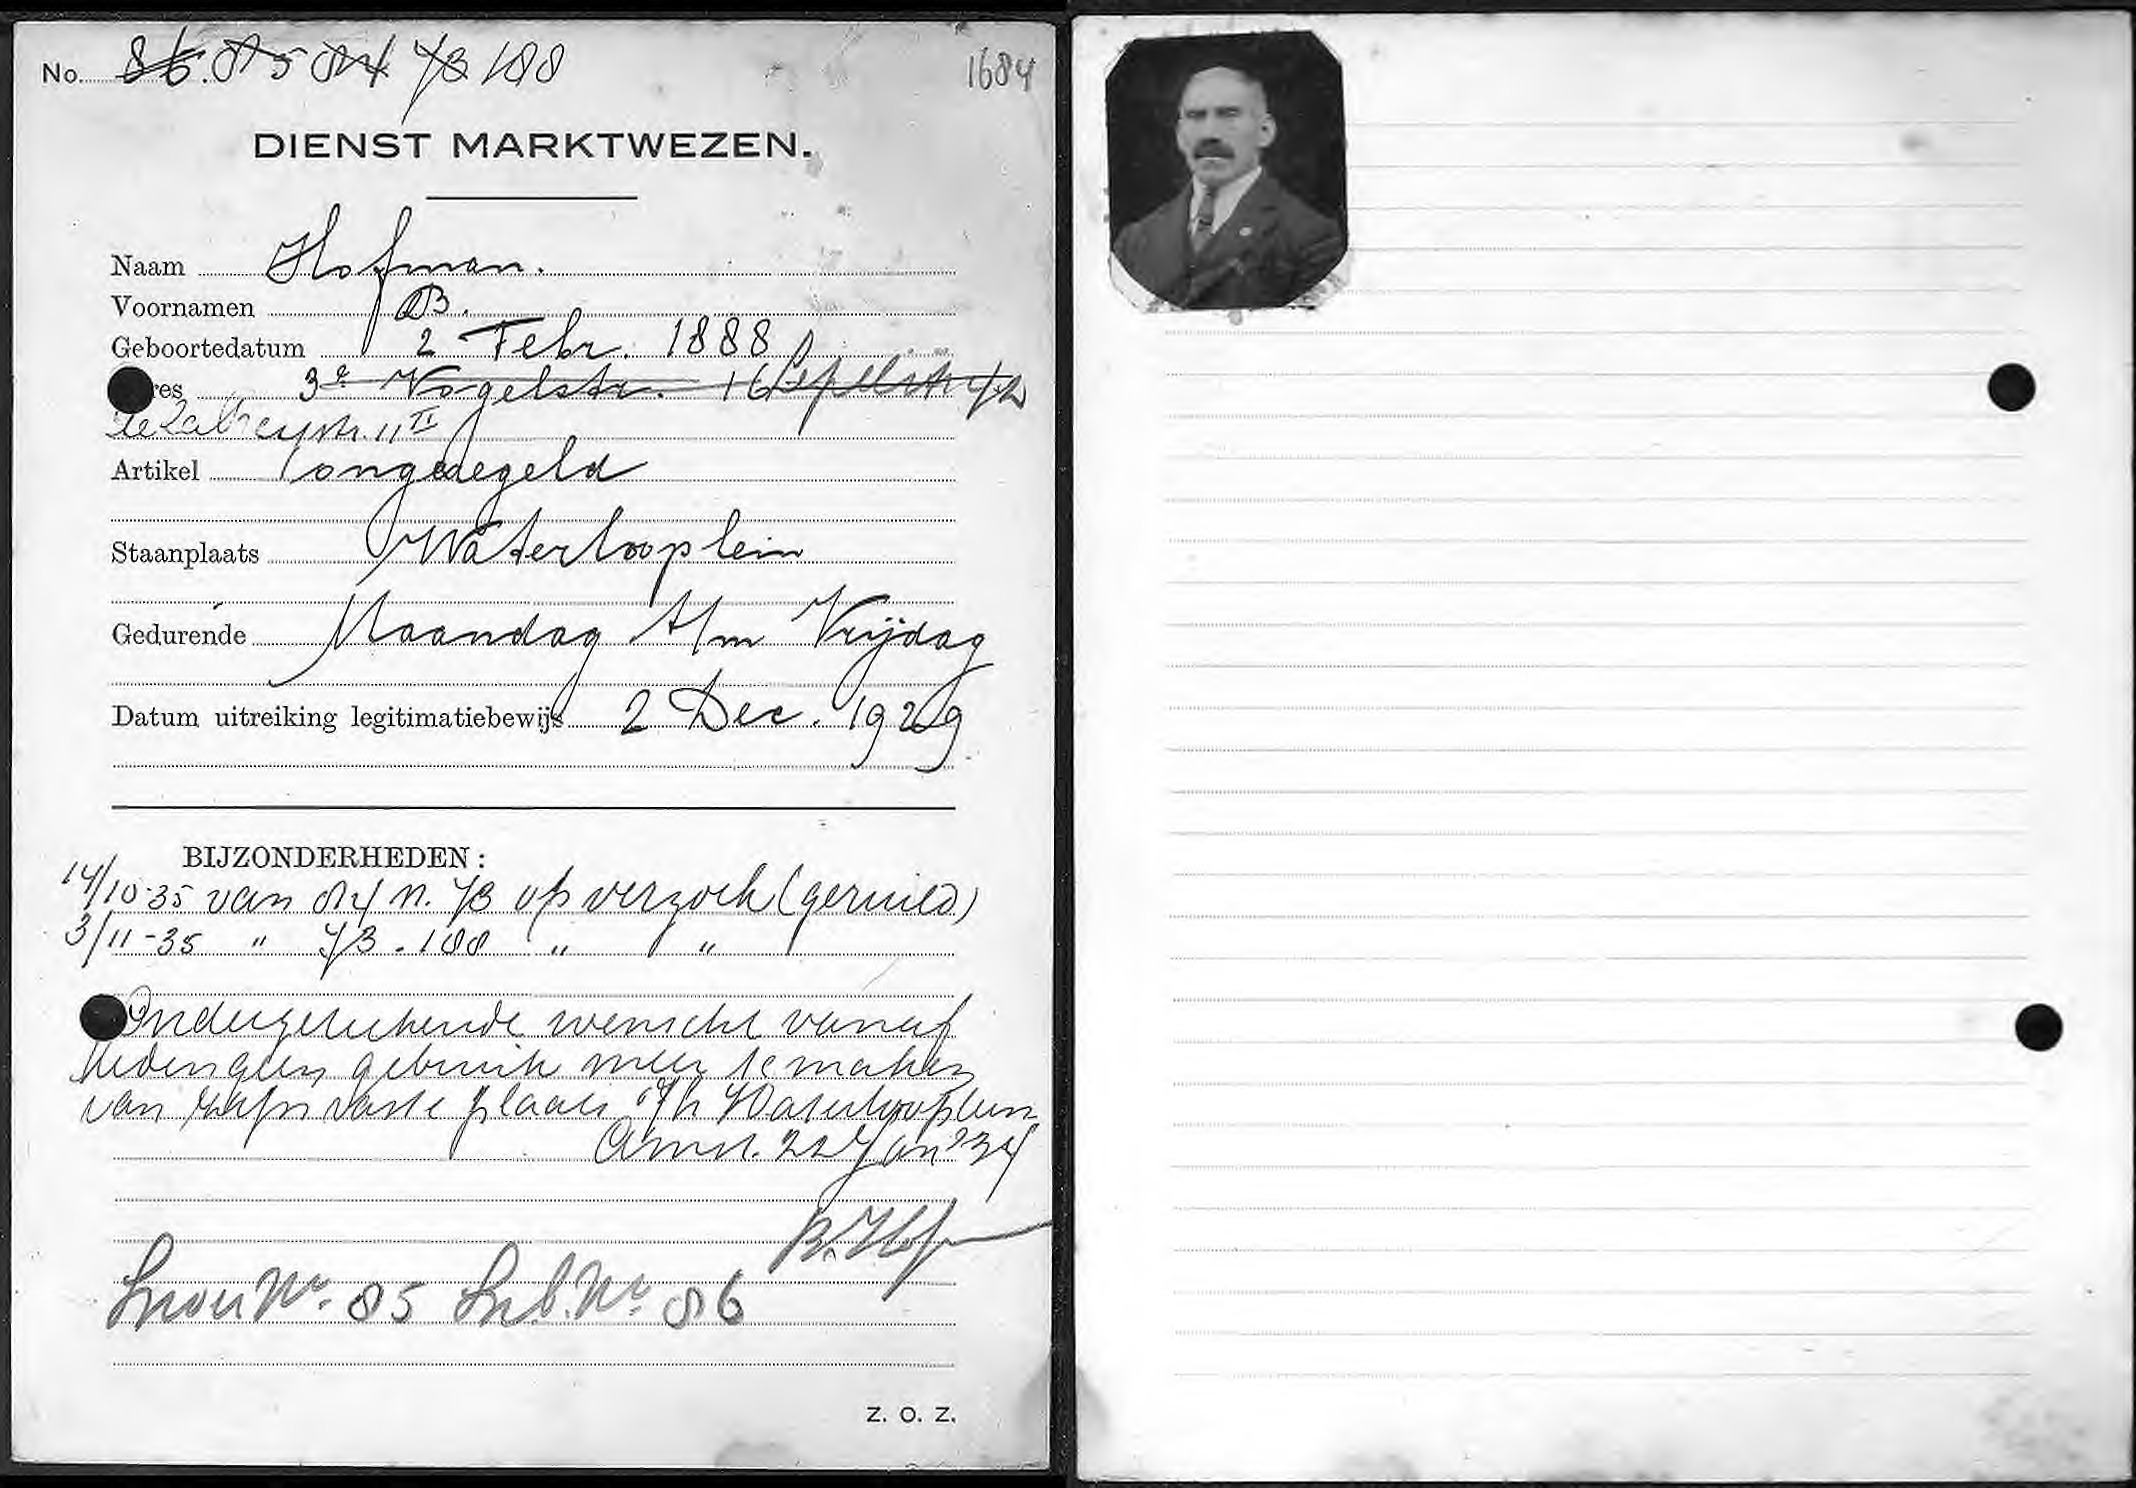 No. 86. 85 84 73 188
1684
DIENST MARKTWEZEN.
Naam Hofman.
Voornamen B.
Geboortedatum 2 Febr. 1888
res 3e Vogelstr. 16 Lepelstr 72
11 II
Artikel ongeregeld
Staanplaats Waterlooplein
Gedurende Maandag t/m Vrijdag
Datum uitreiking legitimatiebewijs 2 Dec. 1929
BIJZONDERHEDEN:
14/10-35 van 84 n. 73 op verzoek (geruild)
3/11-35 " 73 - 188 " "
Ondergeteekende wenscht vanaf
heden geen gebruik meer te maken
van zijn vaste plaats o/h Waterlooplein
Amst. 22 Jan '34
B. Hofman
No. 85 No. 86
Z. O. Z.